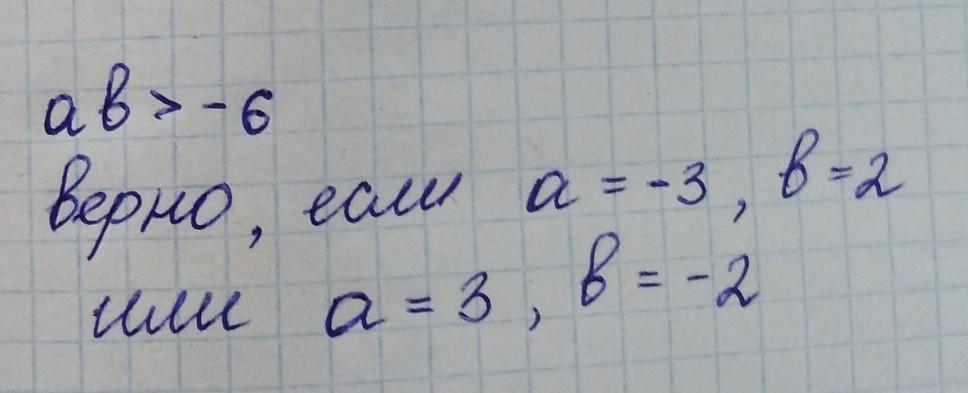 ав > -6
верно, если а = -3, в = 2
или а = 3, в = -2